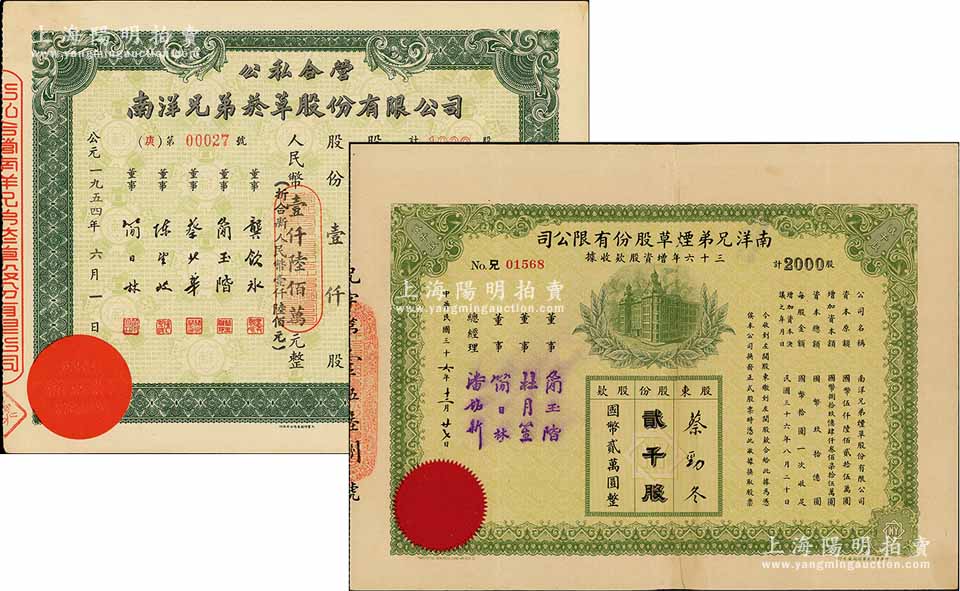 上海陽明拍賣
www.yangmingauction.com
公私合營
南洋兄弟菸草股份有限公司
(庚)第 00027 號
計 1000 股
股份壹仟股
人民幣壹仟陸佰萬元整
(折合新人民幣壹仟陸佰元)
董事 龔飲冰
董事 簡玉階
董事
董事
董事 簡日林
公元一九五四年六月一日
南洋兄弟煙草股份有限公司
三十六年增資股款收據
No.兄 01568
計 2000 股
公司名稱 南洋兄弟煙草股份有限公司
資本原額 國幣伍仟陸佰貳拾伍萬圓
增加資本額 國幣捌拾玖億肆仟叁佰柒拾伍萬圓
資本總額 國幣玖拾億圓
每股金額 國幣拾圓一次收足
增加資本決議之年月日 民國三十六年八月二十日
今收到左開股東繳到左開股款合給此據為憑
俟本公司換發正式股票時憑此收據換取股票
股東 蔡勁冬
股份 貳千股
股款 國幣貳萬圓整
董事 簡玉階
董事 杜月笙
董事 簡日林
總經理
中華民國三十六年十二月廿七日
NY
上海陽明拍賣
www.yangmingauction.com